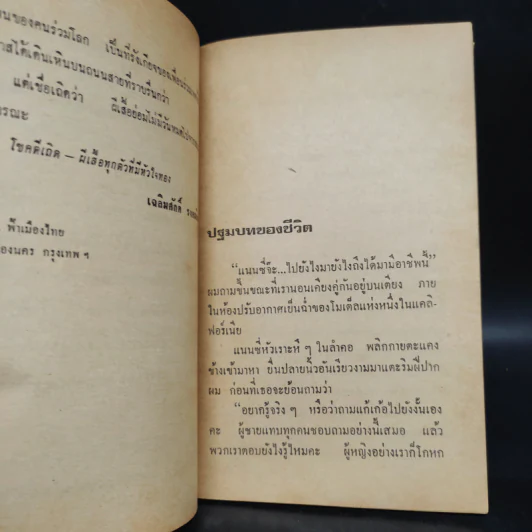 นของคนร่วมโลก เป็นที่รังเกียจของเพื่อนร่วม
าสได้เดินเหินบนถนนสายที่ราบรื่นกว่า
แต่เชื่อเถิดว่า ผีเสื้อย่อมไม่มีวัน
รณะ
โชคดีเถิด – ผีเสื้อทุกตัวที่มีหัวใจทอง
เฉลิมศักดิ์
ฟ้าเมืองไทย
องนคร กรุงเทพฯ
ปฐมบทของชีวิต
“แนนซี่จ๊ะ...ไปยังไงมายังไงถึงได้มามีอาชีพนี้”
ผมถามขึ้นขณะที่เรานอนเคียงคู่กันอยู่บนเตียง ภาย
ในห้องปรับอากาศเย็นฉ่ำของโมเต็ลแห่งหนึ่งในแคลิ-
ฟอร์เนีย
แนนซี่หัวเราะหึ ๆ ในลำคอ พลิกกายตะแคง
ข้างเข้ามาหา ยื่นปลายนิ้วอันเรียวงามมาแตะริมฝีปาก
ผม ก่อนที่เธอจะย้อนถามว่า
“อยากรู้จริง ๆ หรือว่าถามแก้เก้อไปยังงั้นเอง
คะ ผู้ชายแทบทุกคนชอบถามอย่างนี้เสมอ แล้ว
พวกเราตอบยังไงรู้ไหมคะ ผู้หญิงอย่างเราก็โกหก